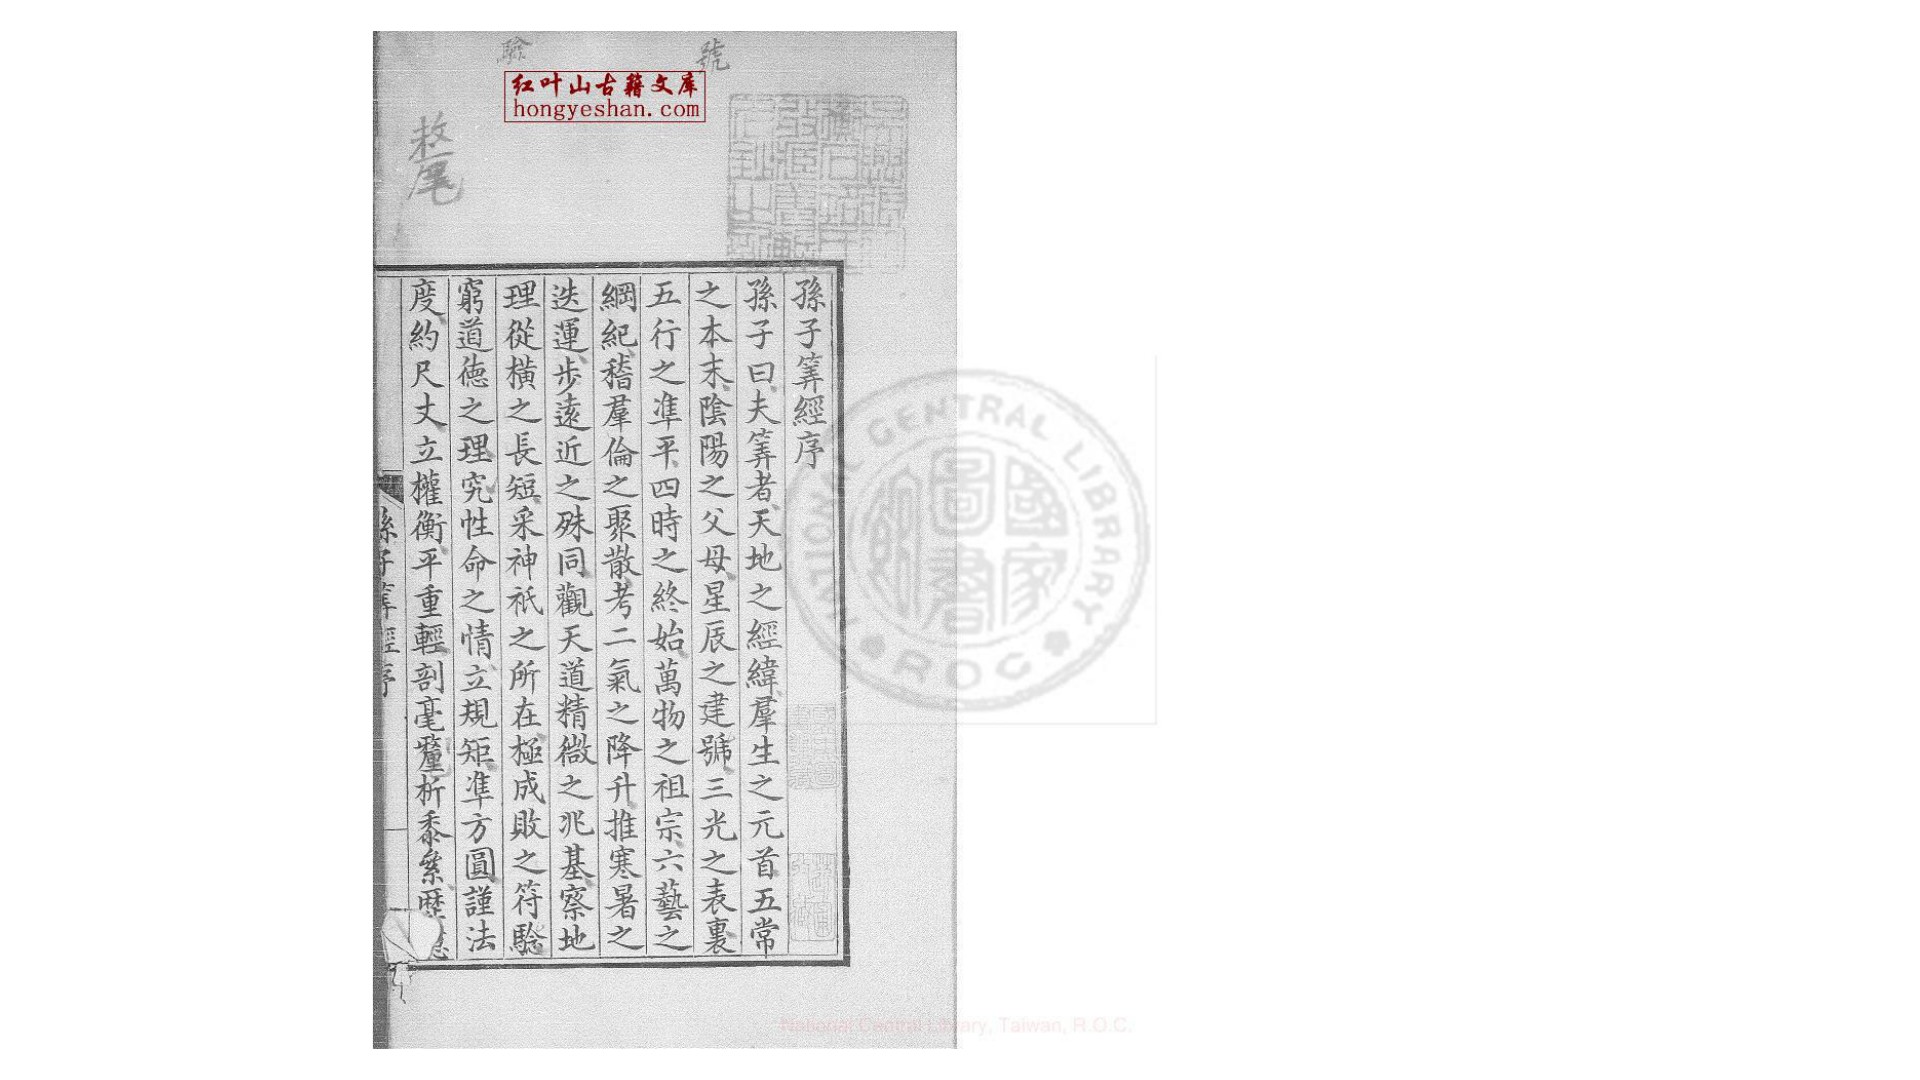 號
驗
红叶山古籍文库
hongyeshan.com
孫子筭經序
孫子曰夫筭者天地之經緯羣生之元首五常
之本末陰陽之父母星辰之建號三光之表裏
五行之準平四時之終始萬物之祖宗六藝之
綱紀稽羣倫之聚散考二氣之降升推寒暑之
迭運步遠近之殊同觀天道精微之兆基察地
理從橫之長短采神祇之所在極成敗之符驗
窮道德之理究性命之情立規矩準方圓謹法
度約尺丈立權衡平重輕剖毫釐析黍絫歷
孫子筭經序
NATIONAL CENTRAL LIBRARY
R.O.C
國家圖書館
National Central Library, Taiwan, R.O.C.